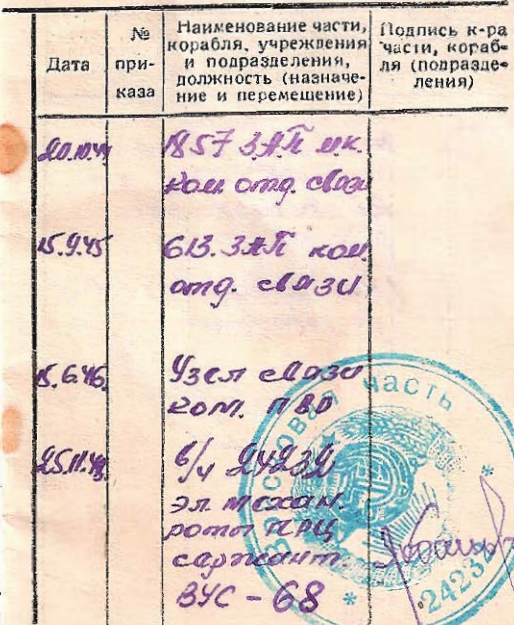 Дата
№ при-
каза
Наименование части,
корабля, учреждения
и подразделения,
должность (назначе-
ние и перемещение)
Подпись к-ра
части, кораб-
ля (подразде-
ления)
1857 ЗАП
ком отд. связи
15.9.45 613. ЗАП ком.
отд. связи
15.6.46. Узел связи
ком.
в/ч 24232
эл. механ.
роты ПРЦ
сержант.
ВУС - 68
Войсковая часть
24232